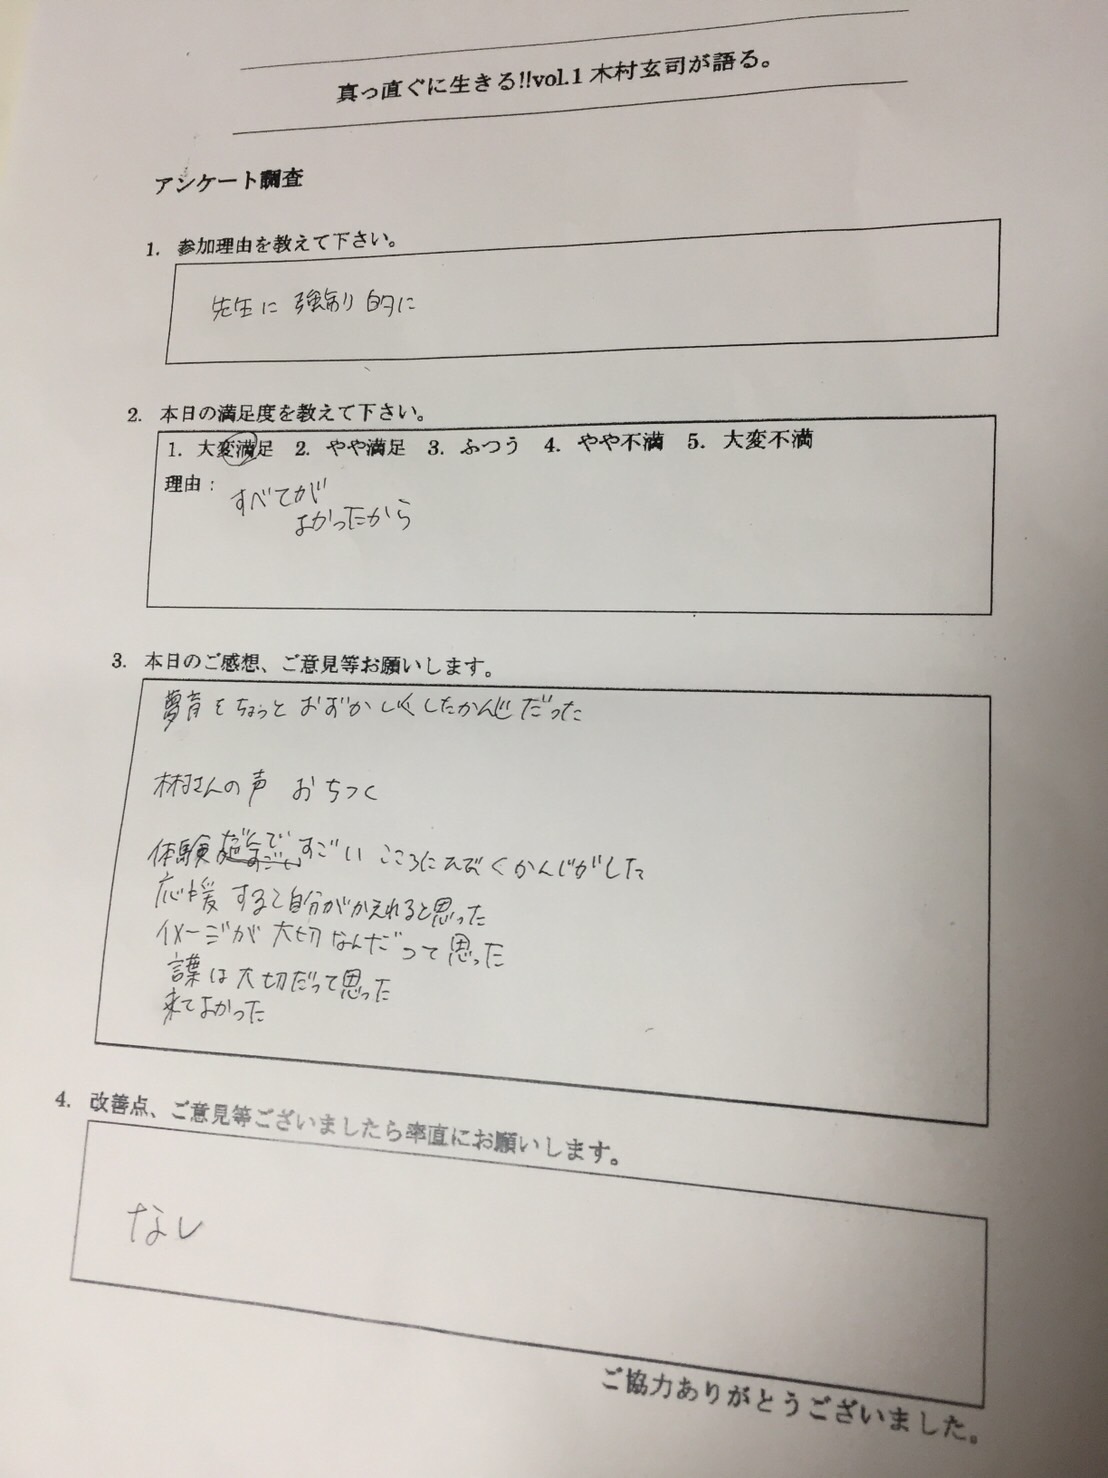 真っ直ぐに生きる!!vol.1 木村玄司が語る。
アンケート調査
1. 参加理由を教えて下さい。
先生に 強制的に
2. 本日の満足度を教えて下さい。
1. 大変満足 2. やや満足 3. ふつう 4. やや不満 5. 大変不満
理由：
すべてが
よかったから
3. 本日のご感想、ご意見等お願いします。
夢育をちょっと おずかしくしたかんじだった
木村さんの声 おちつく
体験 すごい こころにひびくかんじがした
応援すると自分がかえれると思った
イメージが大切なんだって思った
言葉は大切だって思った
来てよかった
4. 改善点、ご意見等ございましたら率直にお願いします。
なし
ご協力ありがとうございました。